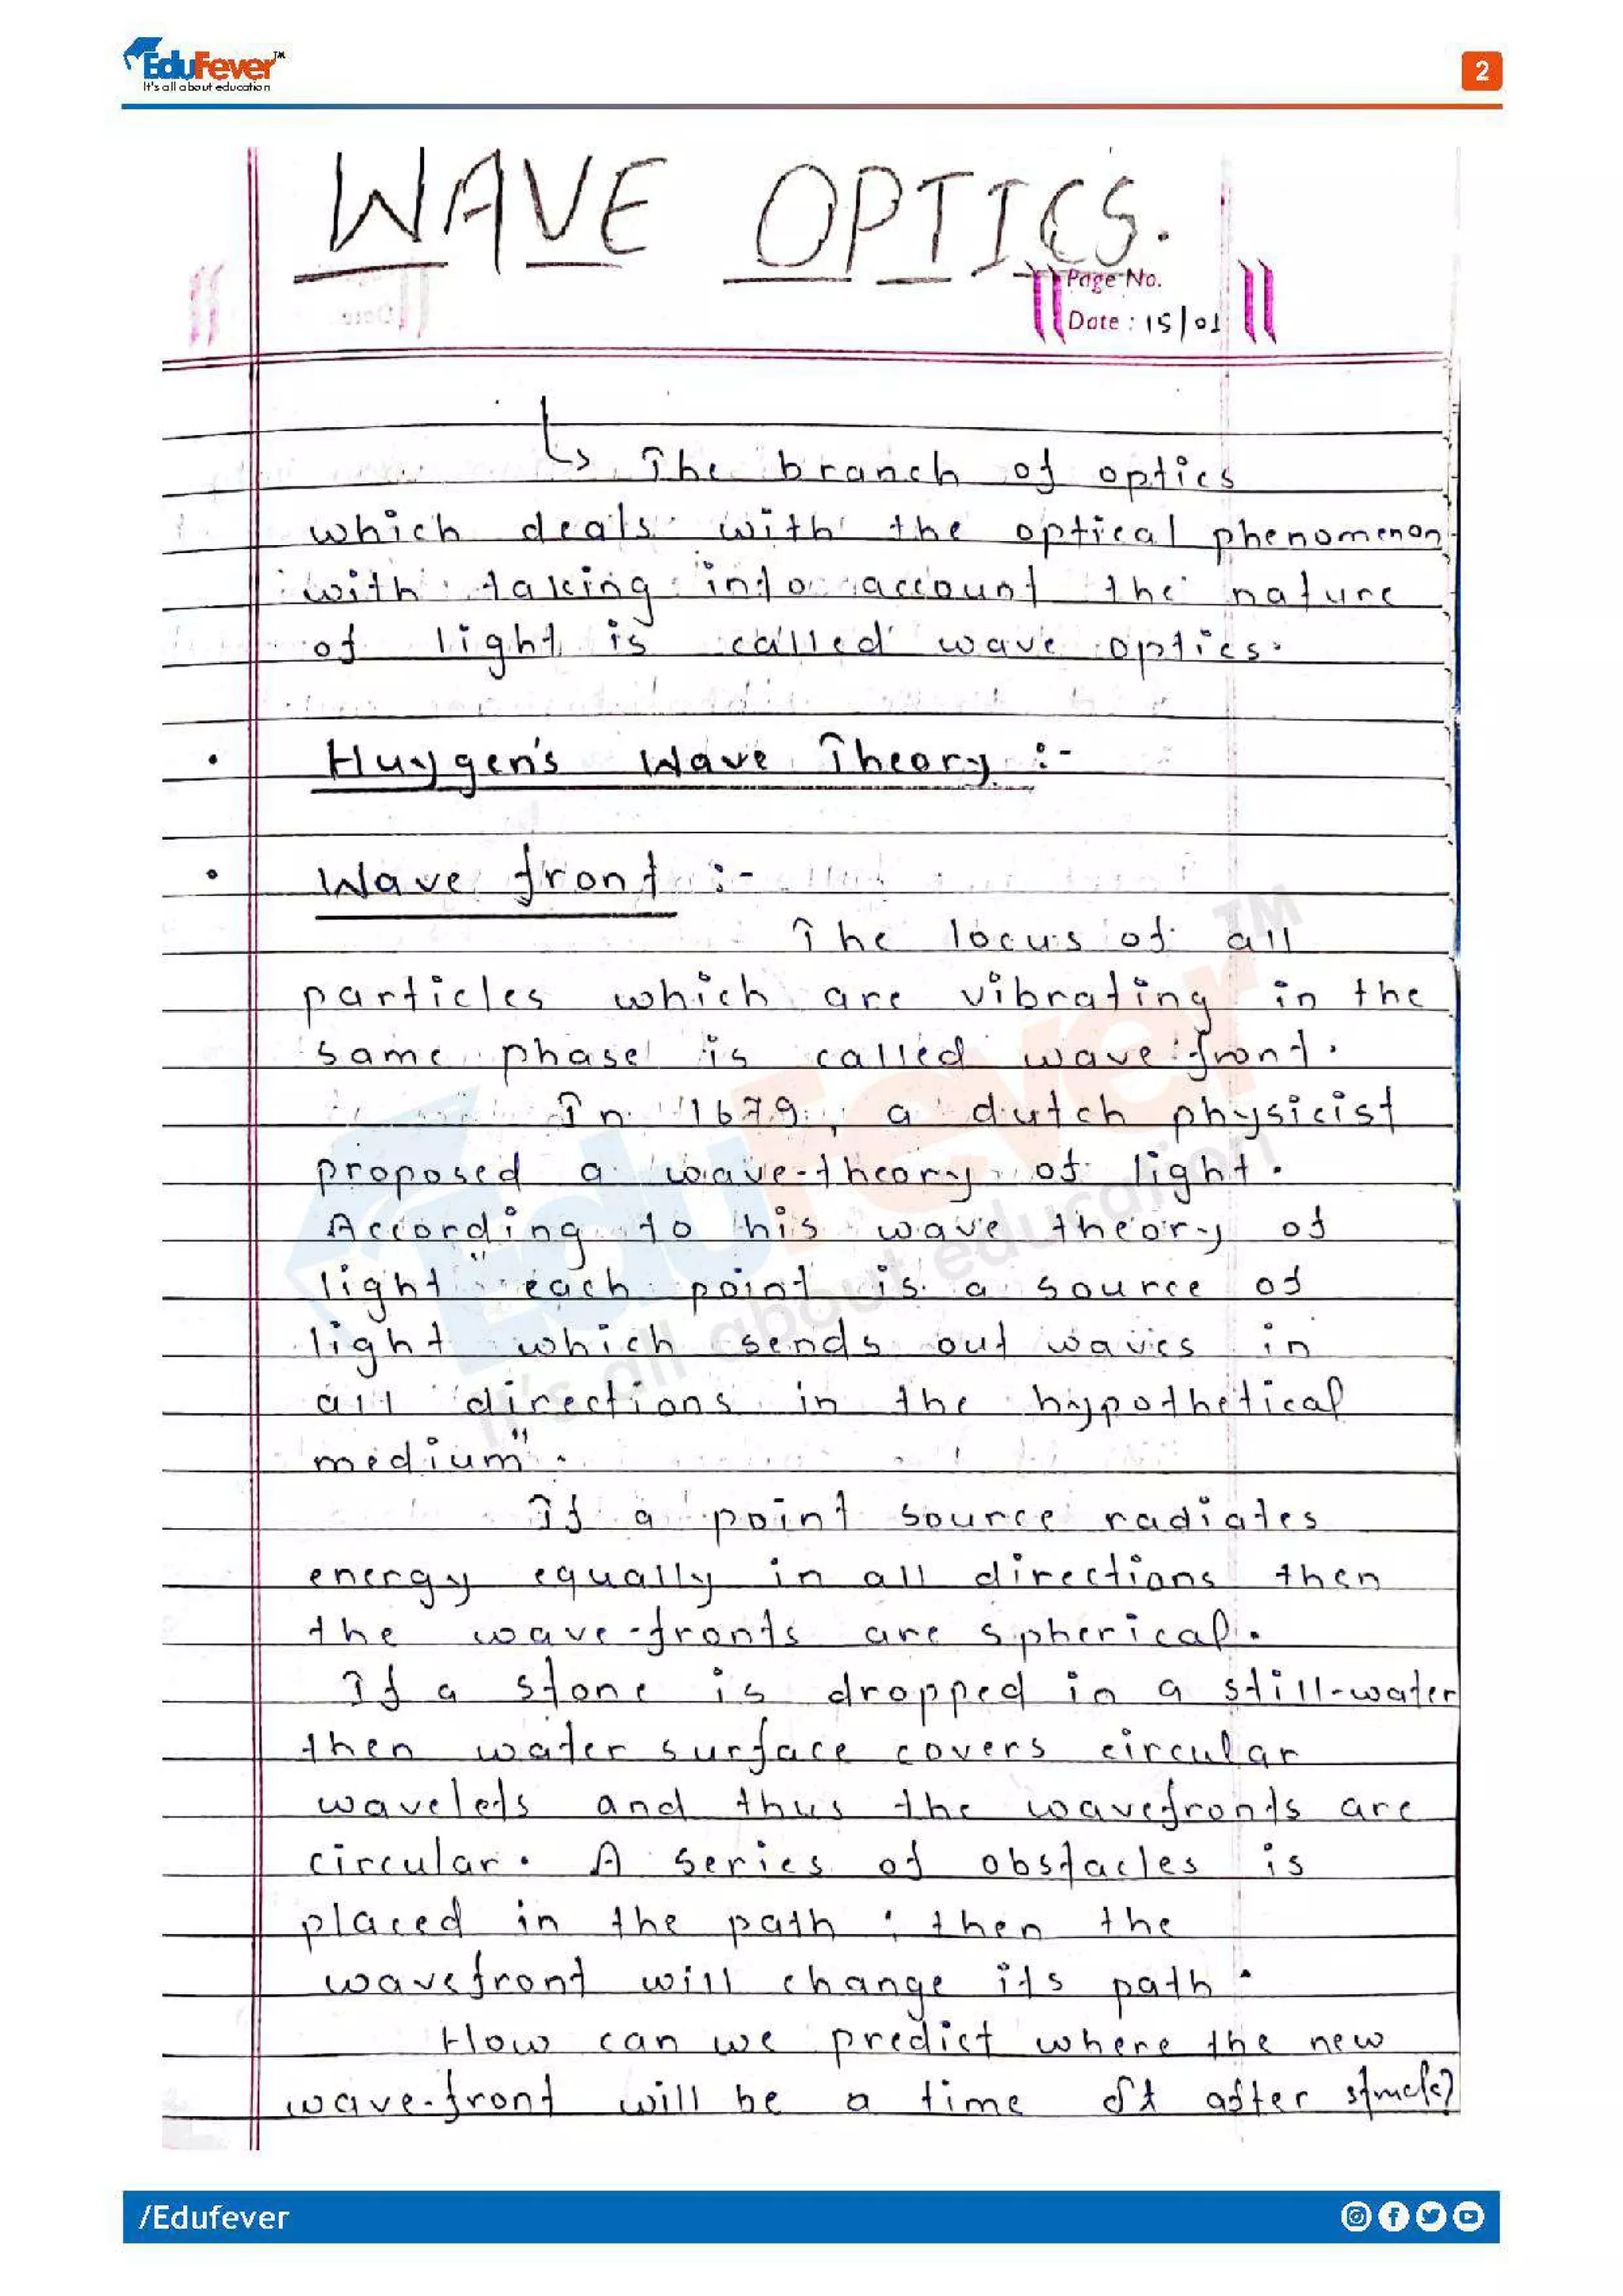 EduFever™
It's all about education
2
WAVE OPTICS.
Page No.
Date : 15/01
↳ The branch of optics
which deals with the optical phenomenon
with taking into account the nature
of light is called wave optics.
• Huygen's Wave Theory :-
• Wave front :-
The locus of all
particles which are vibrating in the
same phase is called wave front.
In 1679, a dutch physicist
proposed a wave-theory of light.
According to his wave theory of
light "each point is a source of
light which sends out waves in
all directions in the hypothetical
medium".
If a point source radiates
energy equally in all directions then
the wave-fronts are spherical.
If a stone is dropped in a still-water
then water surface covers circular
wavelets and thus the wavefronts are
circular. A series of obstacles is
placed in the path ; then the
wavefront will change its path.
How can we predict where the new
wave-front will be a time δt after
/Edufever